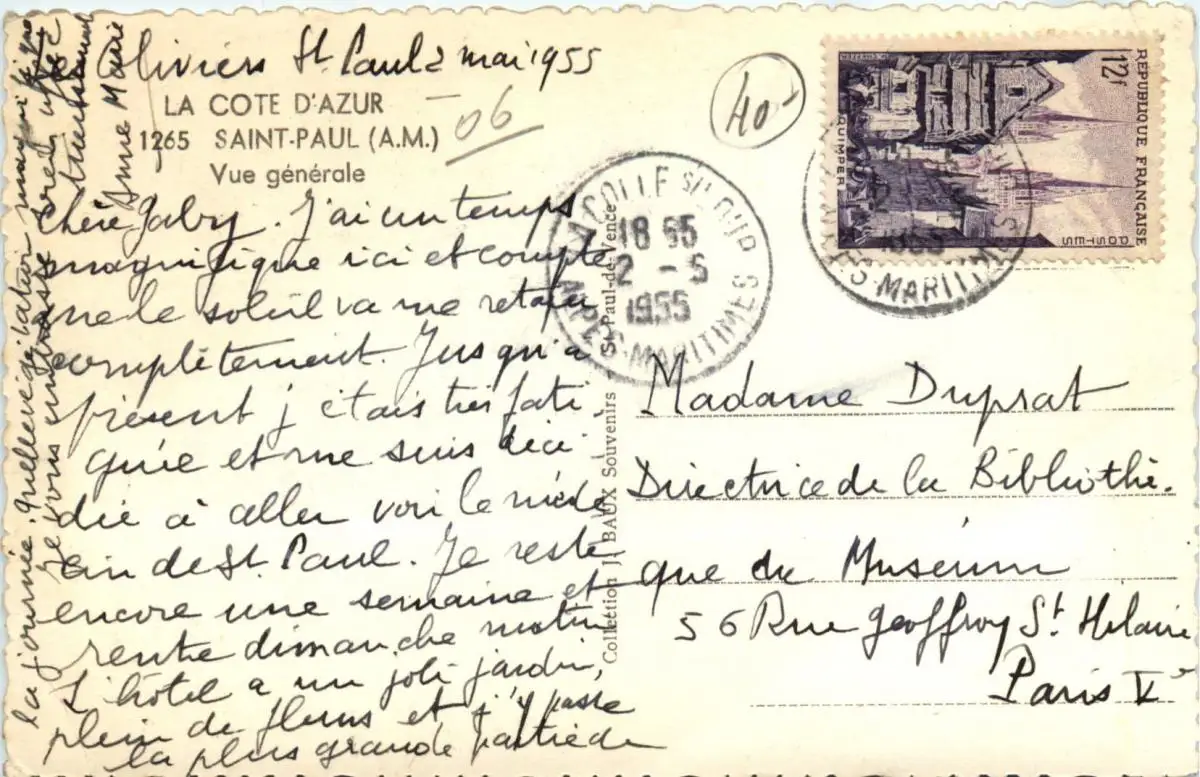 Oliviers St. Paul 2 mai 1955
LA COTE D'AZUR
06
1265 SAINT-PAUL (A.M.)
Vue générale
Chère Gabry. J'ai un temps
magnifique ici et compte
que le soleil va me retaper
complètement. Jusqu'à
présent j'étais très fati-
guée et me suis déci-
dée à aller voir le méde
cin de St. Paul. Je reste
encore une semaine et
rentre dimanche matin
L'hôtel a un joli jardin,
plein de fleurs et j'y passe
la plus grande partie de
la journée. Quelle
Je vous embrasse
Anne Marie
40-
RÉPUBLIQUE FRANÇAISE
12f
POSTES
QUIMPER
LA COLLE S/ LOUP
18 55
2 - 5
1955
ALPES-MARITIMES
1955
ALPES-MARITIMES
Collection J. BAUX Souvenirs St-Paul-de-Vence
Madame Duprat
Directrice de la Bibliothè-
que du Muséum
56 Rue Geoffroy St. Hilaire
Paris Ve